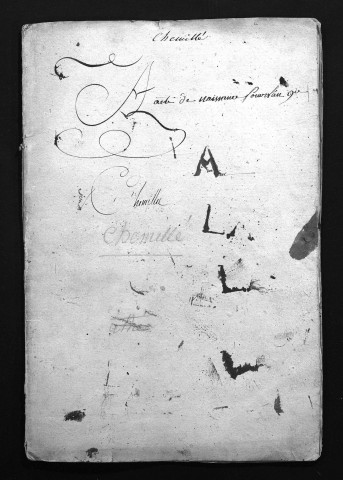 Chemillé
Acte de naissance pour l'an 9e
A
Chemillé
L
Chemillé
L
L